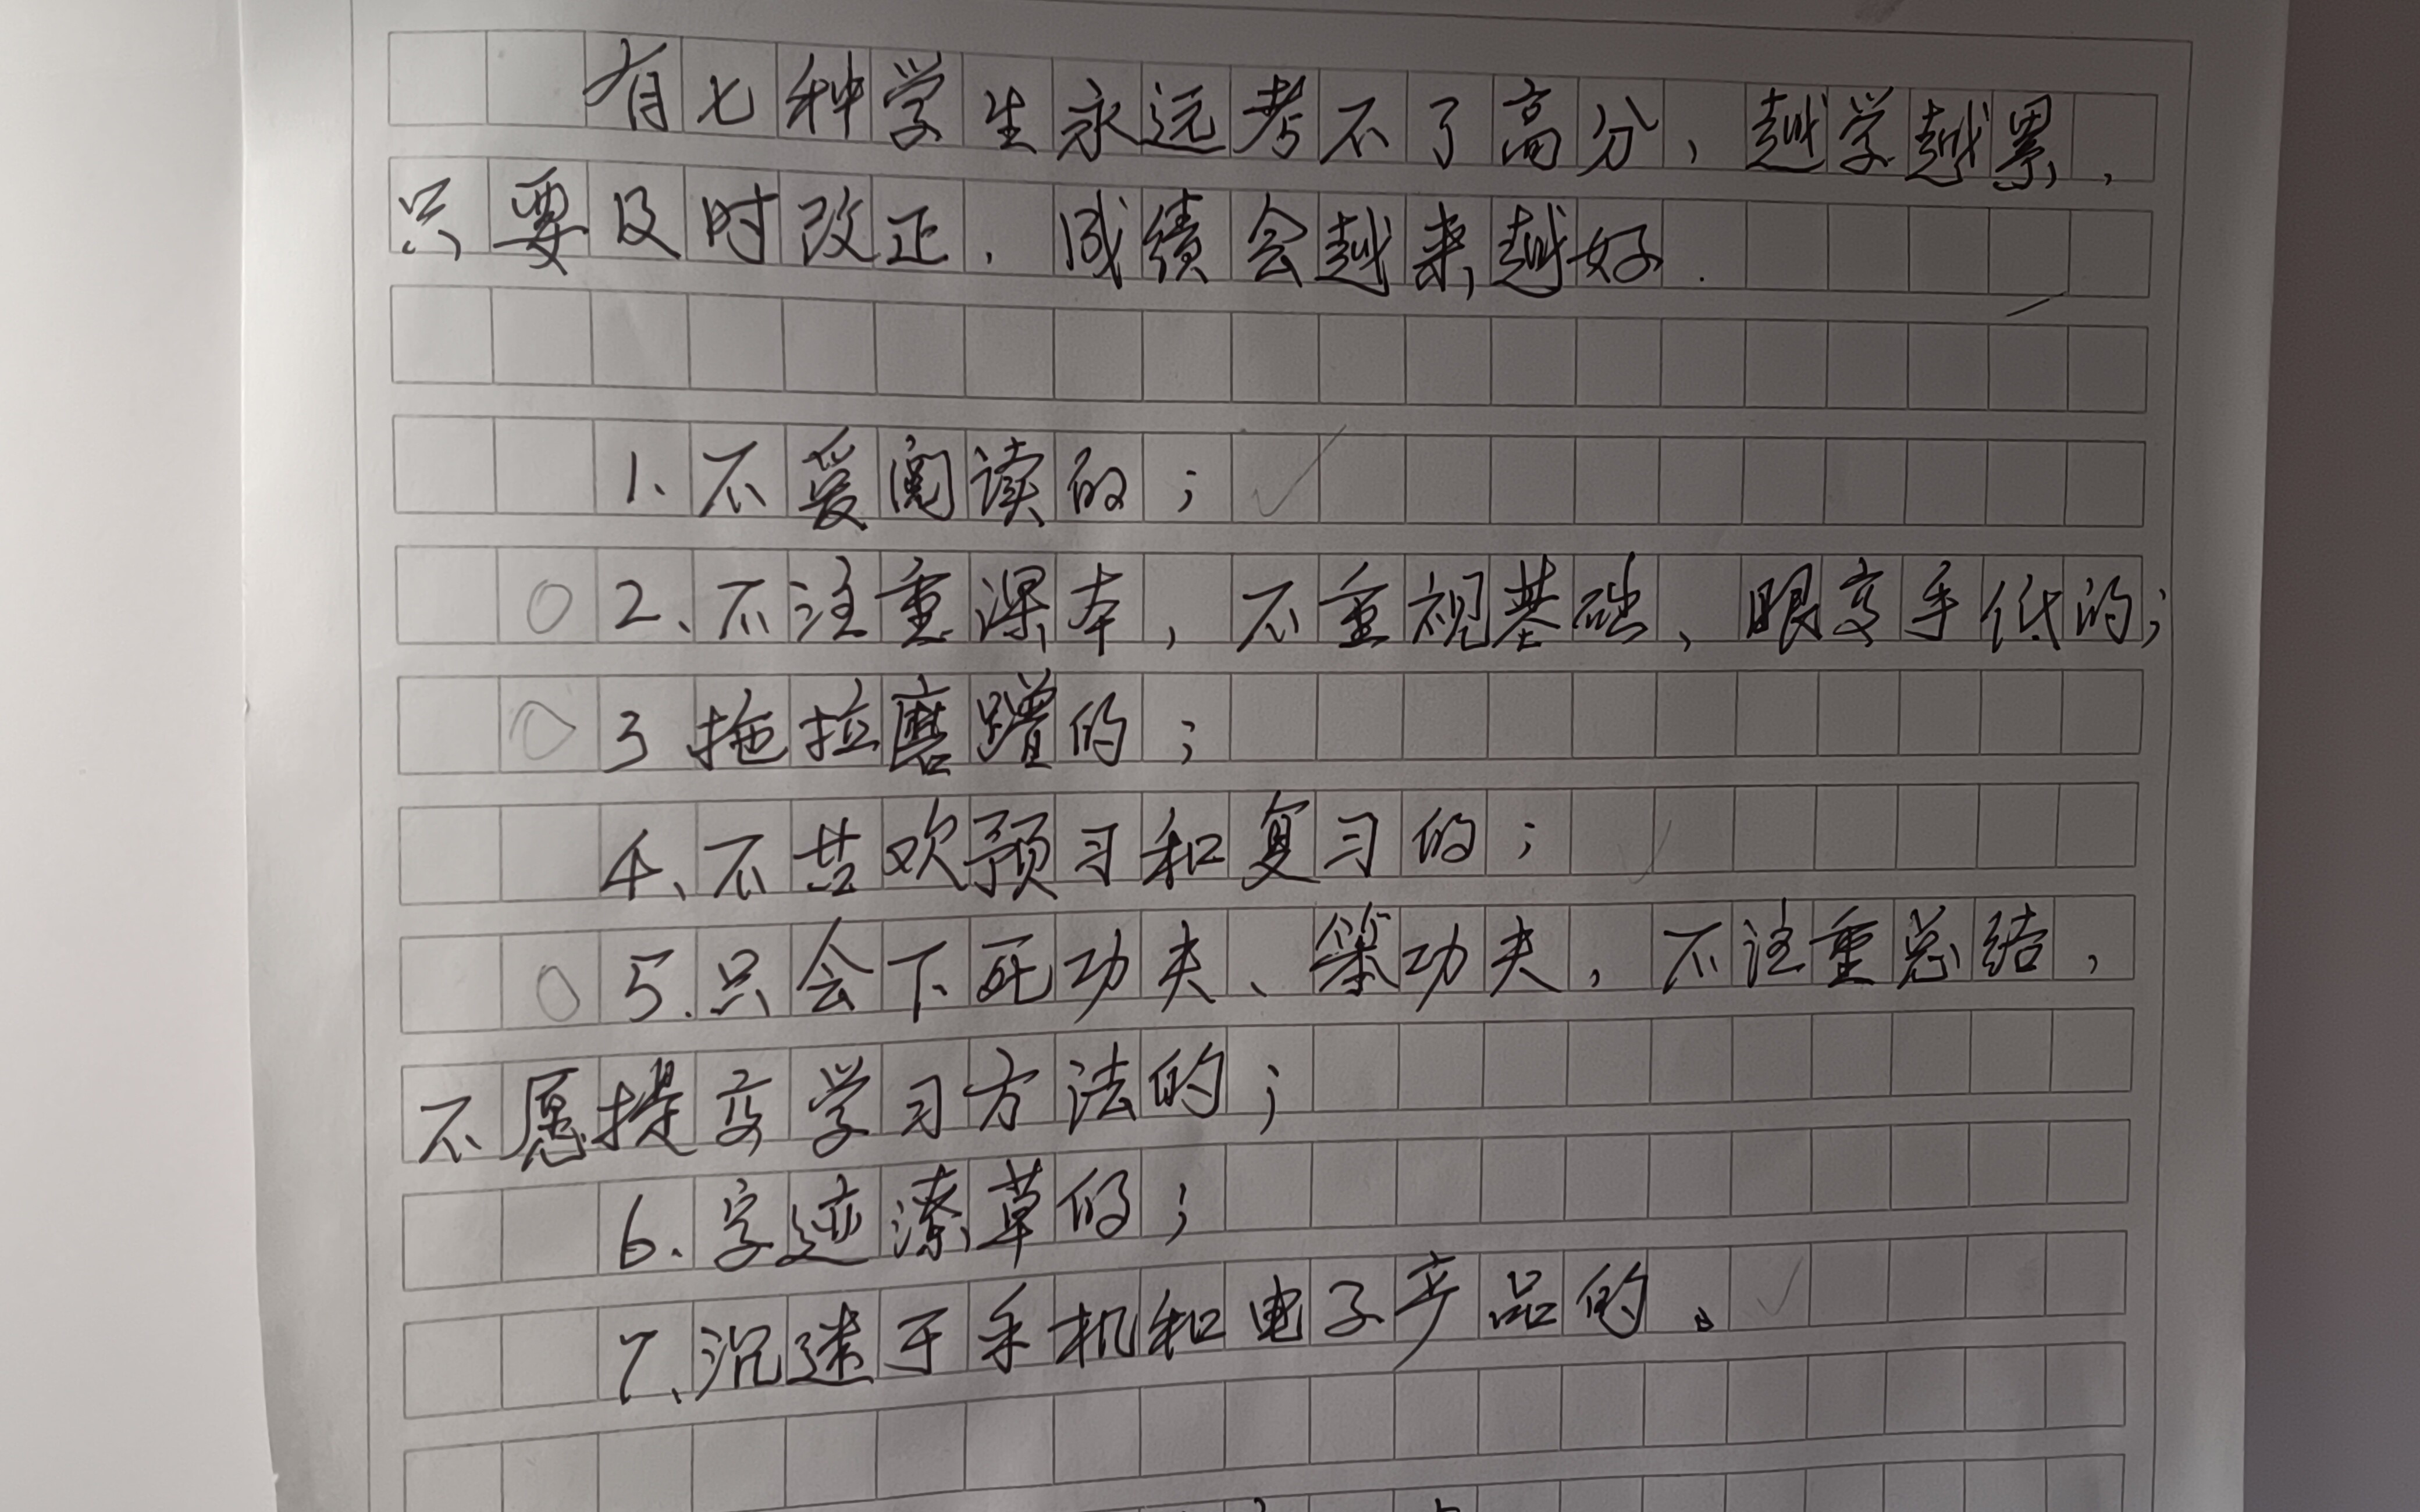 有七种学生永远考不了高分，越学越累，
只要及时改正，成绩会越来越好.
1、不爱阅读的；
2、不注重课本，不重视基础，眼高手低的；
3 拖拉磨蹭的；
4、不喜欢预习和复习的；
5.只会下死功夫、笨功夫，不注重总结，
不愿变学习方法的；
6.字迹潦草的；
7、沉迷于手机和电子产品的。